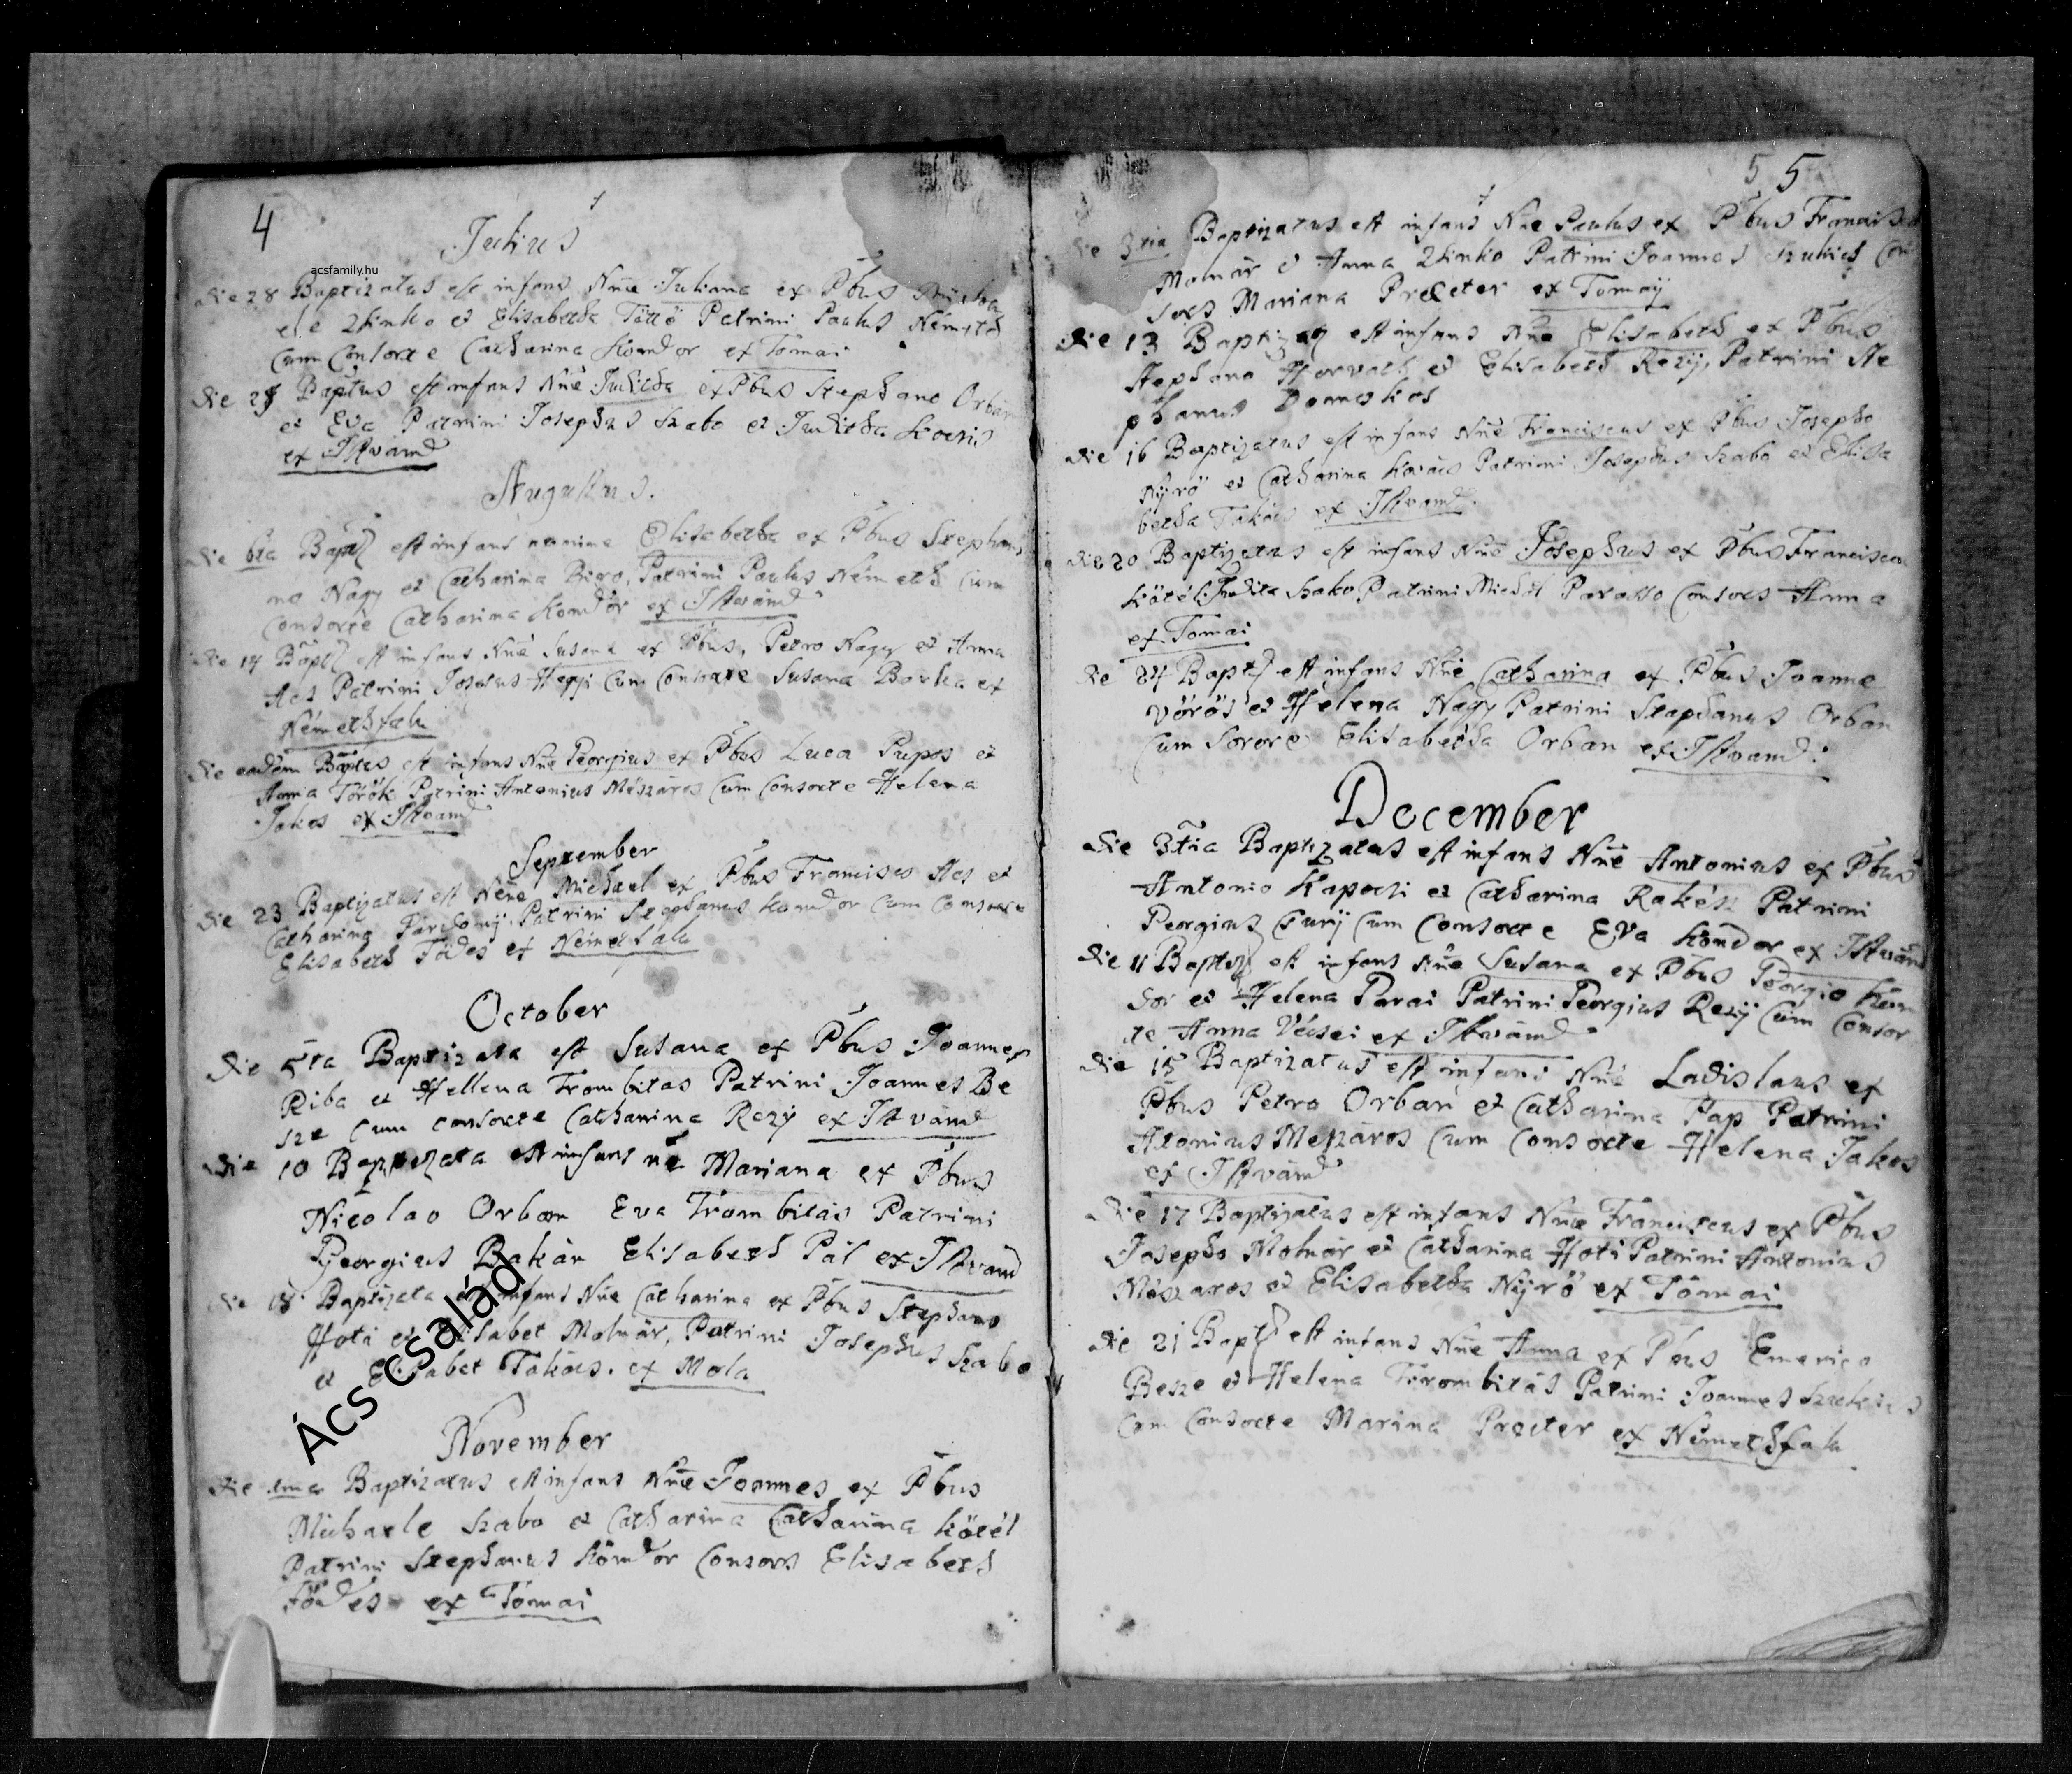 4
Julius
acsfamily.hu
die 28 Baptizatus est infans Nne Juliana ex Pbus Micha
ele Zsinko et Elisabetha Töttö Patrini Paulus Németh
cum Consorte Catharina Kondor ex Tomai
die 29 Baptus est infans Nne Juditha ex Pbus Stephano Orbán
et Eva Patrini Josephus Szabo et Juditha Kocsis
ex Istvánd
Augustus.
die 6ta Bapt est infans nomine Elisabetha ex Pbus Stepha
no Nagy et Catharina Biro, Patrini Paulus Németh cum
Consorte Catharina Kondor ex Istvánd
die 14 Bapt est infans Nne Susana ex Pbus, Petro Nagy et Anna
Acs Patrini Josephus Hegyi cum Consorte Susana Borka ex
Némethfalu
die eadem Baptus est infans Nne Georgius ex Pbus Luca Pupos et
Anna Török Patrini Antonius Mészáros cum Consorte Helena
Jakos ex Istvánd
September
die 23 Baptizatus est Nne Michael ex Pbus Francisco Acs et
Catharina Patrini Stephanus Kondor cum Consorte
Elisabeth Födes ex Némethfalu
October
die 5ta Baptizata est Susana ex Pbus Joannes
Riba et Hellena Trombitas Patrini Joannes Be
sze cum consorte Catharina Rezÿ ex Istvánd
die 10 Baptizata est infans ne Mariana ex Pbus
Nicolao Orban Eva Trombitás Patrini
Georgius Bakán Elisabeth Pál ex Istvánd
die 18 Baptizata est infans Nne Catharina ex Pbus Stephano
Hoti et Elisabet Molnár, Patrini Josephus Szabo
et Elisabet Takács. ex Mola
Ács család
November
die 1ma Baptizatus est infans Nne Joannes ex Pbus
Michaele Szabo et Catharina Catharina Kötél
Patrini Stephanus Kondor Consors Elisabeth
Födes ex Tomai
5 5
die 3tia Baptizatus est infans Nne Paulus ex Pbus Francisco
Molnár et Anna Zsinko Patrini Joannes Con
sors Mariana ex Tomaÿ
die 13 Baptiz est infans Nne Elisabeth ex Pbus
Stephano Horvath et Elisabeth Rezÿ, Patrini Ste
phanus Domokos
die 16 Baptizatus est infans Nne Franciscus ex Pbus Josepho
Nÿrö et Catharina Kovács Patrini Josephus Szabo et Elisa
betha Takács ex Istvánd.
die 20 Baptizatus est infans Nne Josephus ex Pbus Francisco
Kötél Judita Szabo Patrini Michál Parasso Consors Anna
ex Tomai
die 24 Bapt est infans Nne Catharina ex Pbus Joanne
Vörös et Helena Nagy Patrini Stephanus Orban
cum Sorore Elisabetha Orban ex Istvánd.
December
die 3tia Baptizatus est infans Nne Antonius ex Pbus
Antonio Kapocsi et Catharina Rakész Patrini
Georgius cum Consorte Eva Kondor ex Istvánd
die 11 Bapt est infans Nne Susana ex Pbus Georgio Kon
dor et Helena Parai Patrini Georgius Rezÿ cum Consor
te Anna Vécsei ex Istvánd
die 15 Baptizatus est infans Nne Ladislaus ex
Pbus Petro Orban et Catharina Pap Patrini
Atonius Meszáros cum Consorte Helena Jakos
ex Istvánd
die 17 Baptizatus est infans Nne Franciscus ex Pbus
Josepho Molnár et Catharina Hoti Patrini Antonius
Mészáros et Elisabetha Nÿrö ex Tomai
die 21 Bapt est infans Nne Anna ex Pbus Emerico
Besze et Helena Trombitás Patrini Joannes
cum Consorte Marina ex Némethfalu